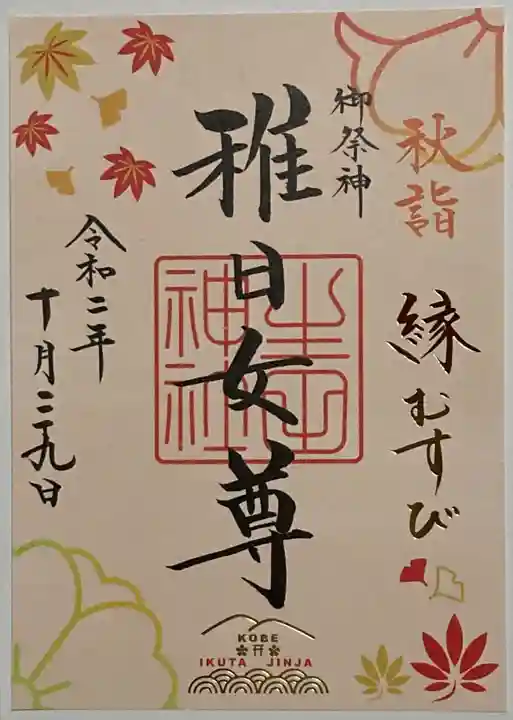 秋詣
縁むすび
御祭神
稚日女尊
生田神社
令和二年
十月二十九日
KOBE
IKUTA JINJA